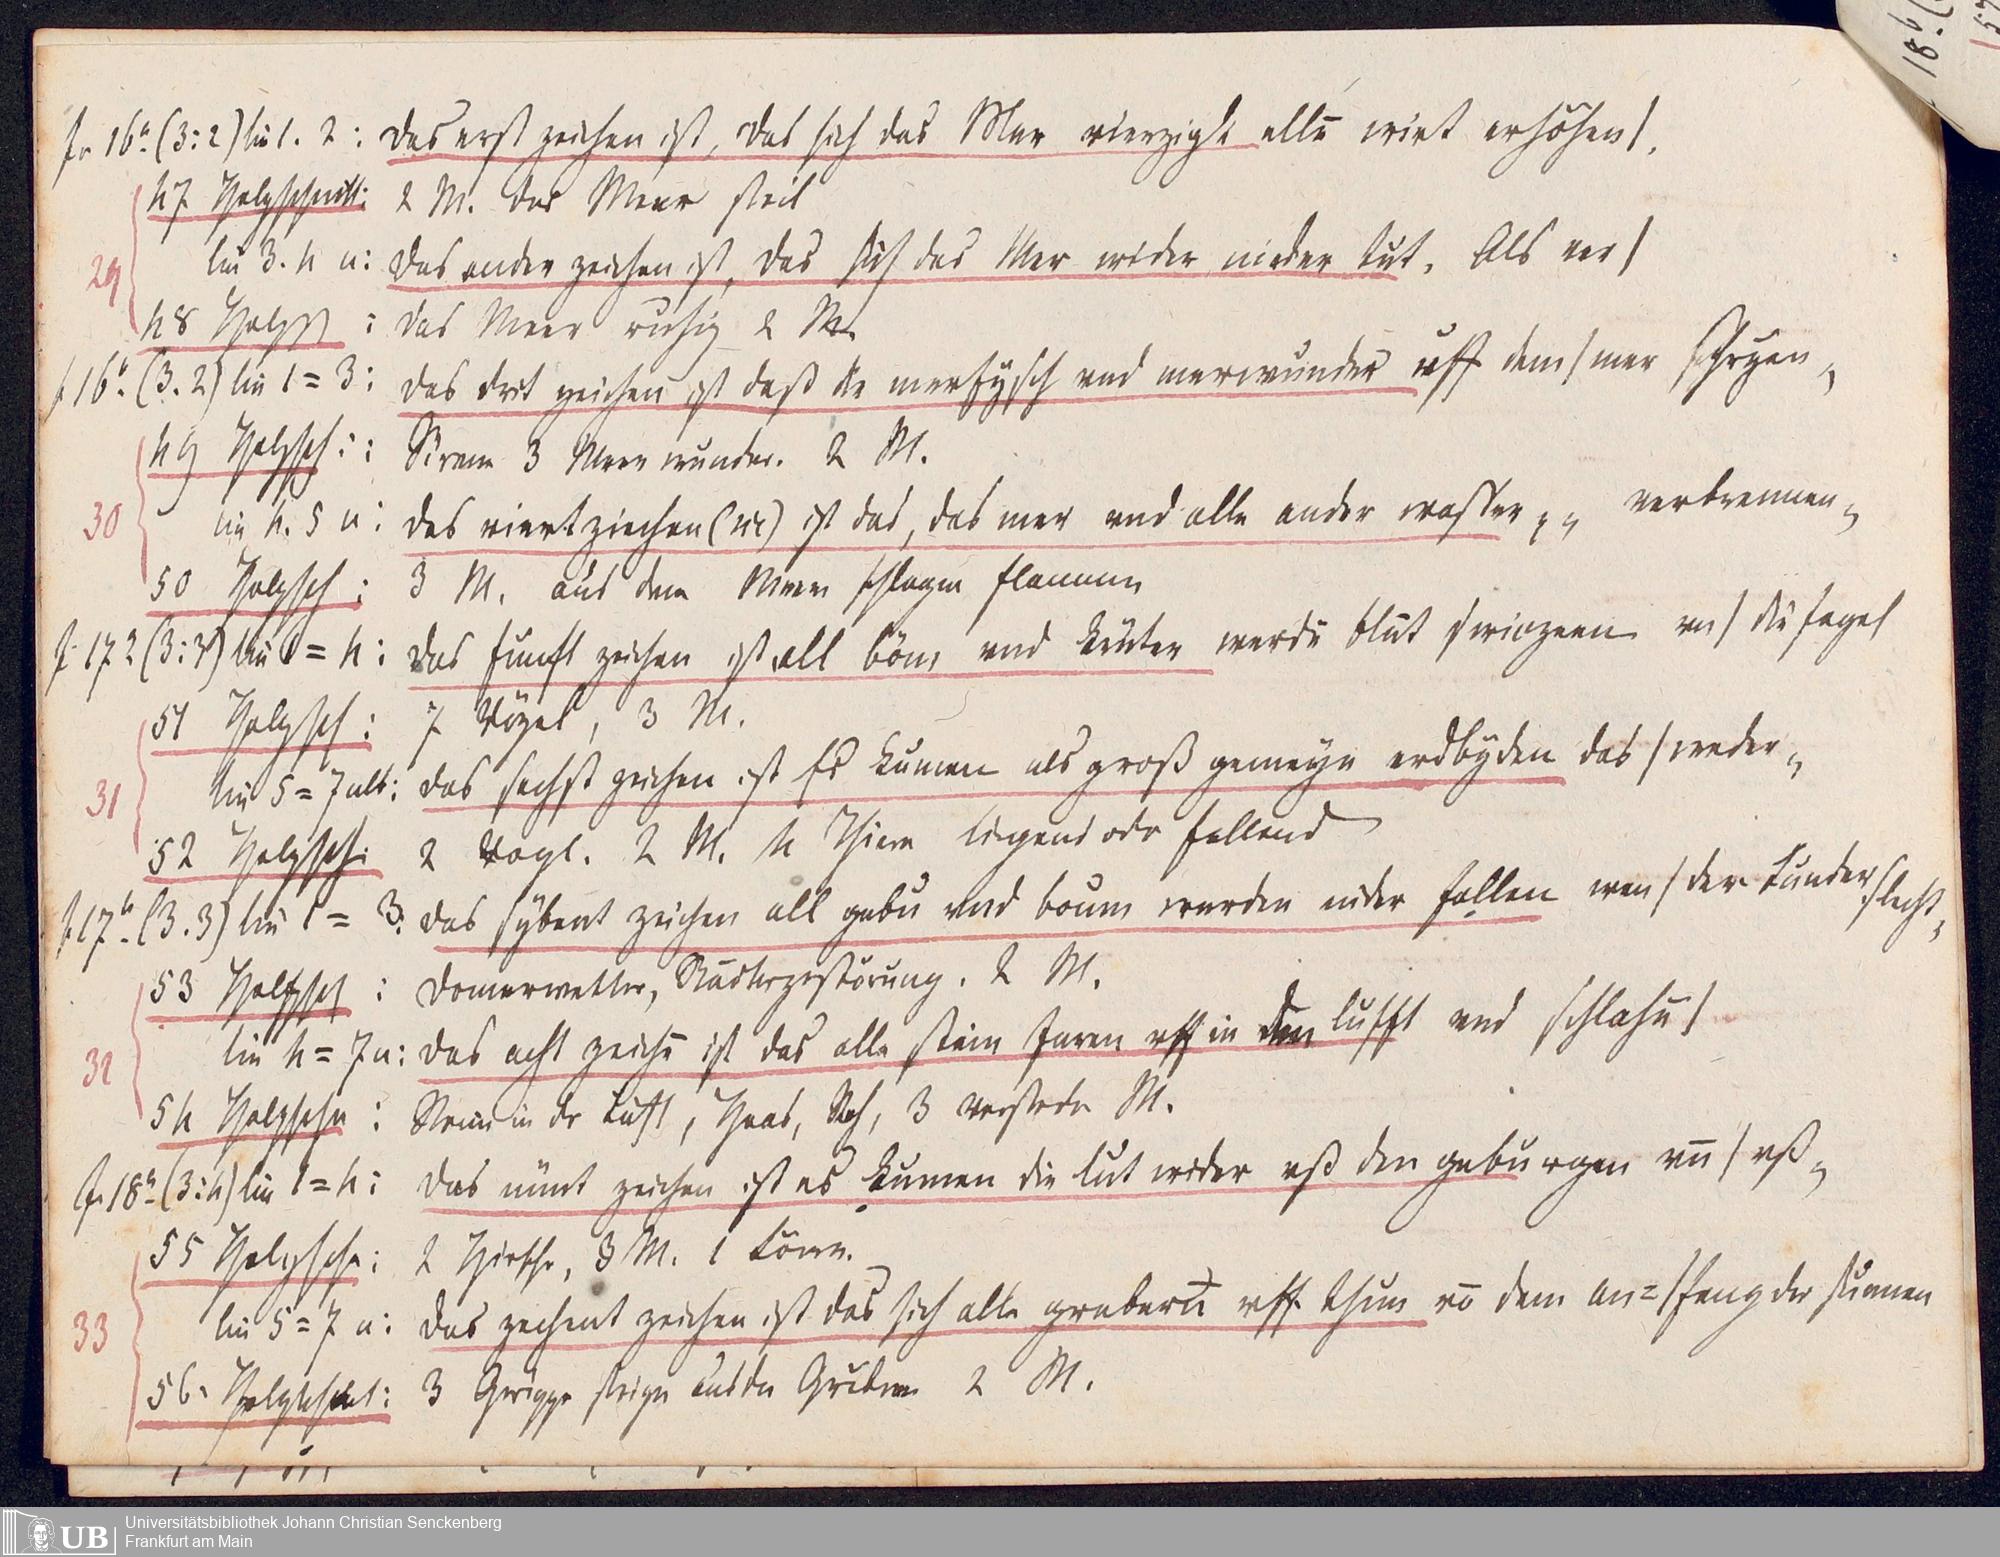 f. 16a. (3:2) lin 1. 2: das erst zeichen ist, das sich das Mer vierzigk ellē wirt erhöhen/.
47 Holzschnitt: 2 M. das Meer steil
29 lin 3. 4 u: das ander zeichen ist, das sich das Mer wider nieder tut. Als ver/
48 Holzs : das Meer ruhig 2 M.
f 16b. (3.2) lin 1=3: das drit zeichen ist daß die merfysch vnd merwunder uff dem/mer schryen
49 Holzsch: : Sirene 3 Meerwunder. 2 M.
30 lin 4. 5 u: das viert ziechen (sic) ist das, das mer vnd alle ander wasser verbrennen
50 Holzsch: 3 M. aus dem Meer schlagen flammen
f 17a (3:3) lin 1=4: das funft zeichen ist all böm vnd krüter werdē blut switzeen vn/ die fogel
51 Holzsch: 7 Vögel, 3 M.
31 lin 5=7 ult: das sechst zeichen ist Es kumen als groß gemeyn erdbyden das/weder
52 Holzsch: 2 Vögl. 2 M. 4 Thiere liegend oder fallend
f. 17b. (3.3) lin 1=3: das sybent zeichen all gebu vnd boum werden nider fallen wen/der tunder slecht
53 Holzsch : Donnerwetter, Städtezerstörung. 2 M.
32 lin 4=7 u: das acht zeichē ist das alle stein faren vff in den lufft vnd schlahē/
54 Holzschn : Steine in der Luft, Haas, Reh, 3 versteckte M.
f. 18a. (3:4) lin 1=4: das nünt zeichen ist es kumen die lut wider vß den geburgen vn̄/vß
55 Holzsch: 2 Hirsche, 3 M. 1 Löwe.
33 lin 5=7 u: das zechent zeichen ist das sich alle greber vff thun vō dem an=/fang der sunnen
56. Holzschnt: 3 Gerippe steigen aus den Gräbern 2 M.
UB Universitätsbibliothek Johann Christian Senckenberg
Frankfurt am Main